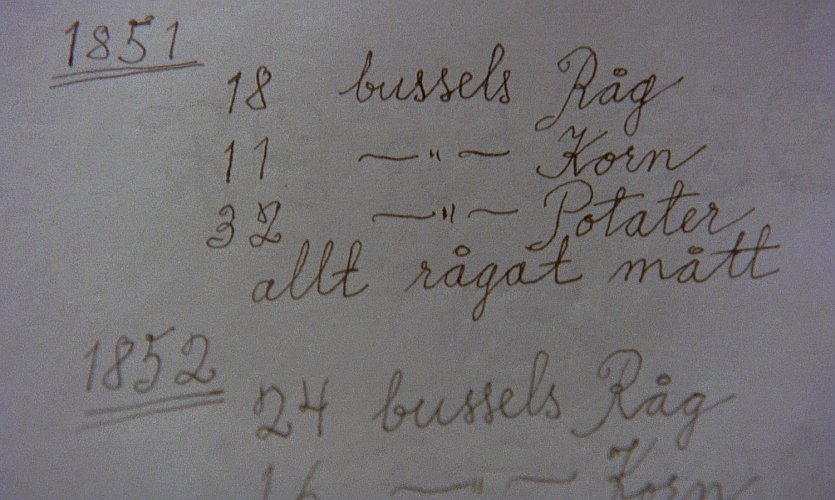 1851
18 bussels Råg
11 —"— Korn
32 —"— Potater
allt rågat mått
1852
24 bussels Råg
16 —"— Korn